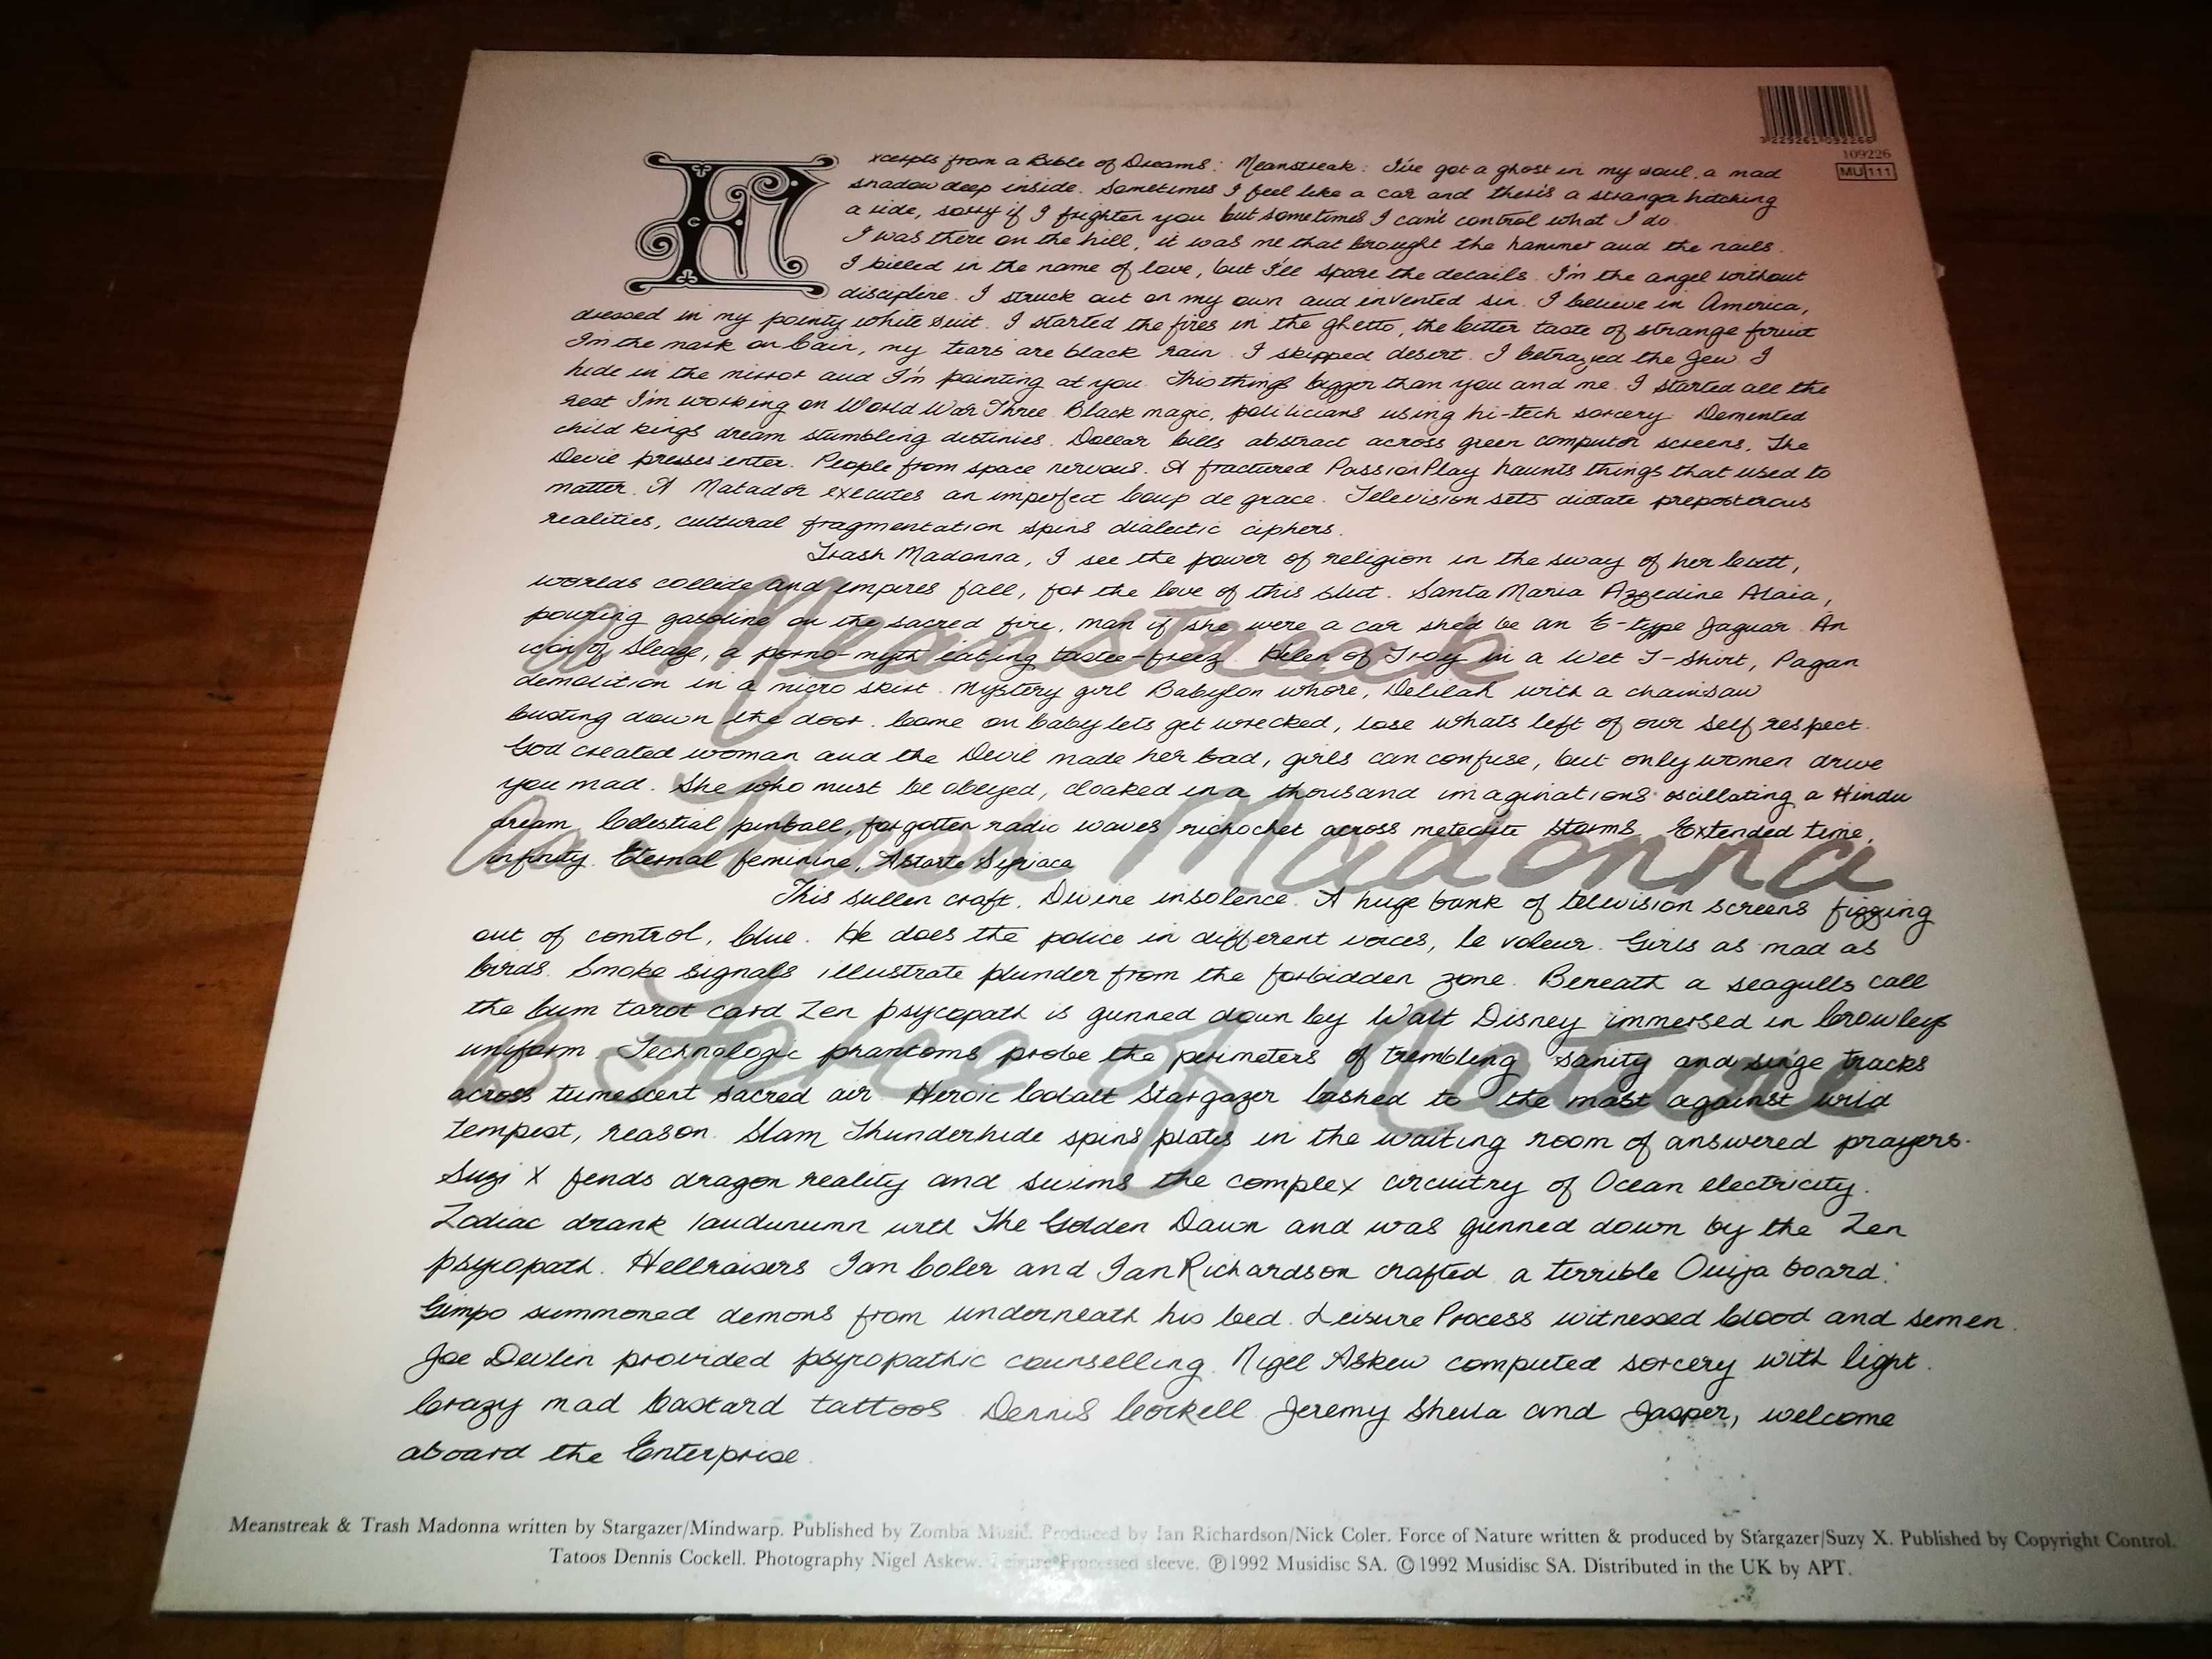 3229261092266
109226
MU 111
xcerpts from a Bible of Dreams: Meanstreak: I've got a ghost in my soul, a mad
shadow deep inside. Sometimes I feel like a car and theris a stranger hitching
a ride, sorry if I frighten you but sometimes I can't control what I do.
I was there on the hill, it was me that brought the hammer and the nails.
I killed in the name of love, but I'll spare the details. I'm the angel without
discipline. I struck out on my own and invented sin. I believe in America,
dressed in my pointy white suit. I started the fires in the ghetto, the bitter taste of strange fruit
I'm the mark on Cain, my tears are black rain. I skipped desert. I betrayed the Jew I
hide in the mirror and I'm pointing at you. This things bigger than you and me. I started all the
rest I'm working on World War Three. Black magic, politicians using hi-tech sorcery. Demented
child kings dream stumbling destinies. Dollar bills abstract across green computor screens. The
Devil presses enter. People from space nervous. A fractured Passion Play haunts things that used to
matter. A Matador executes an imperfect Coup de grace. Television sets dictate preposterous
realities, cultural fragmentation spins dialectic ciphers.
Trash Madonna, I see the power of religion in the sway of her butt,
worlds collide and empires fall, for the love of this slut. Santa Maria Azzedine Alaia,
pouring gasoline on the sacred fire, man if she were a car she'd be an E-type Jaguar. An
icon of Sleaze, a porno-myth eating tastee-freez. Helen of Troy in a Wet T-Shirt, Pagan
demolition in a micro skirt. Mystery girl Babylon whore, Delilah with a chainsaw
busting down the door. Come on baby lets get wrecked, lose whats left of our self respect.
God created woman and the Devil made her bad, girls can confuse, but only women drive
you mad. She who must be obeyed, cloaked in a thousand imaginations oscillating a Hindu
dream. Celestial pinball, forgotten radio waves richochet across meteorite storms. Extended time,
infinity. Eternal feminine, Astarte Syriaca
This sullen craft. Divine insolence. A huge bank of television screens fizzing
out of control, blue. He does the police in different voices, le voleur. Girls as mad as
birds. Smoke signals illustrate plunder from the forbidden zone. Beneath a seagulls call
the bum tarot card Zen psycopath is gunned down by Walt Disney immersed in Crowleys
uniform. Technologic phantoms probe the perimeters of trembling sanity and singe tracks
across tumescent sacred air. Heroic Cobalt Stargazer lashed to the mast against wild
tempest, reason. Slam Thunderhide spins plates in the waiting room of answered prayers.
Suzi X fends dragon reality and swims the complex circuitry of Ocean electricity.
Zodiac drank laudunumn with The Golden Dawn and was gunned down by the Zen
psycopath. Hellraisers Ian Coler and Ian Richardson crafted a terrible Ouija board.
Gimpo summoned demons from underneath his bed. Leisure Process witnessed blood and semen.
Joe Devlin provided psycopathic counselling. Nigel Askew computed sorcery with light.
Crazy mad bastard tattoos Dennis Cockell Jeremy Sheila and Jasper, welcome
aboard the Enterprise.
a Meanstreak
aa Trash Madonna
b Force of Nature
Meanstreak & Trash Madonna written by Stargazer/Mindwarp. Published by Zomba Music. Produced by Ian Richardson/Nick Coler. Force of Nature written & produced by Stargazer/Suzy X. Published by Copyright Control.
Tatoos Dennis Cockell. Photography Nigel Askew. Leisure Processed sleeve. ℗1992 Musidisc SA. ©1992 Musidisc SA. Distributed in the UK by APT.